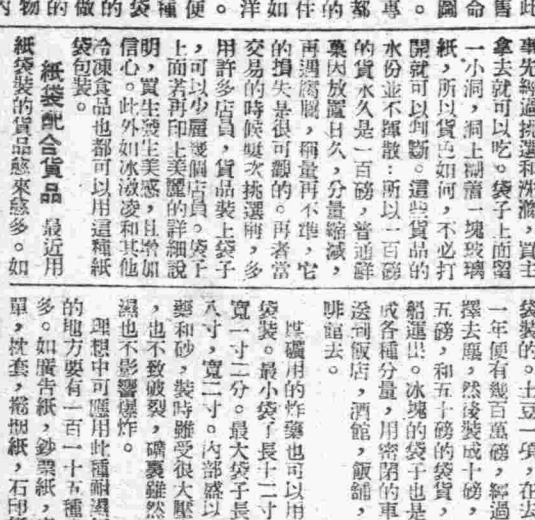 此售命圖 專 都件如洋 便種袋的做的物內
事先經過挑選和洗滌，買主
拿去就可以吃。袋子上面留
一小洞，洞上糊着一塊玻璃
紙，所以貨色如何，不必打
開就可以判斷。這些貨品的
水份並不揮散：所以一百磅
的貨永久是一百磅，普通鮮
菓因放置日久，分量縮減，
再遇腐腐，稱量再不準，它
的損失是很可觀的。再者當
交易的時候屢次挑選稱，多
用許多店員，貨品裝上袋子
，可以少雇幾個店員。袋子
上面若再印上美麗的詳細說
明，買生發生美感，且增加
信心。此外如冰激凌和其他
冷凍食品也都可以用這種紙
袋包裝。
紙袋配合貨品 最近用
紙袋裝的貨品愈來愈多。如
袋裝的。土豆一項，在去
一年便有幾百萬磅，經過
擇去蔴，然後裝成十磅，
五磅，和五十磅的袋貨，
船運出。冰塊的袋子也是
成各種分量，用密閉的車
送到飯店，酒館，飯舖，
啡館去。
煤礦用的炸藥也可以用
袋裝。最小袋子長十二寸
寬一寸二分。最大袋子長
八寸，寬二寸。內部盛以
藥和砂，裝時雖受很大壓
，也不致破裂，礦裏雖然
濕也不影響爆炸。
理想中可應用此種耐濕
的地方要有一百一十五種
多。如廣告紙，鈔票紙，
單，枕套，捲烟紙，石印